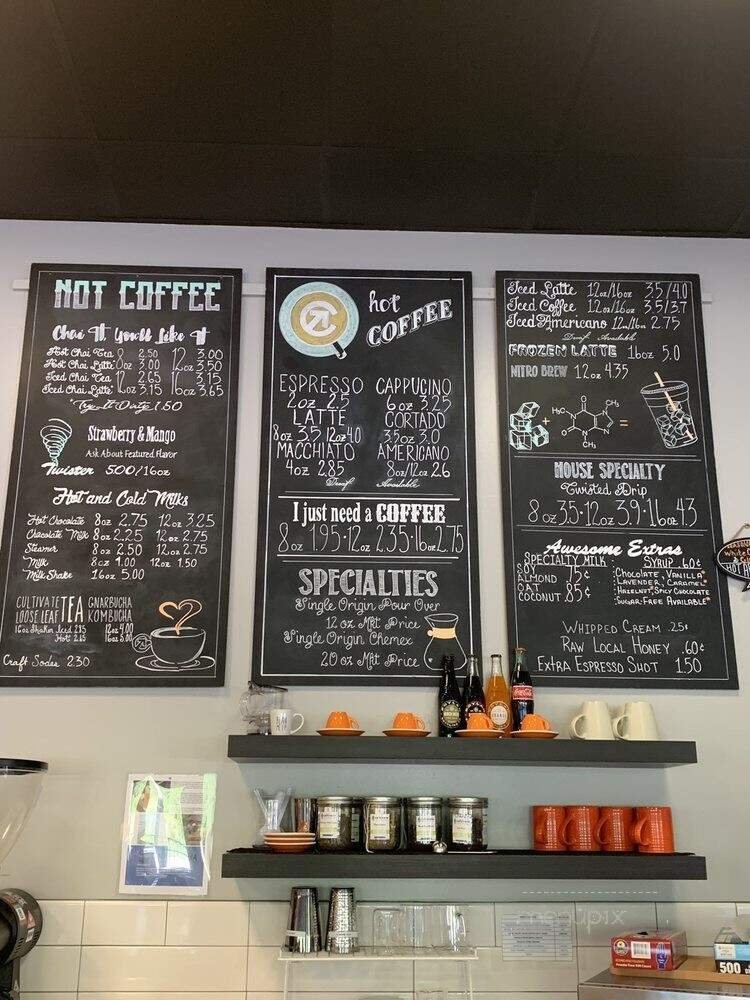 NOT COFFEE
Chai It, You'll Like It
Hot Chai Tea 8oz 2.50 12oz 3.00
Hot Chai Latte 8oz 3.00 12oz 3.50
Iced Chai Tea 12oz 2.65 16oz 3.15
Iced Chai Latte 12oz 3.15 16oz 3.65
"Try It Dirty" 1.50
Strawberry & Mango
Ask About Featured Flavor
Twister 5.00/16oz
Hot and Cold Milks
Hot Chocolate 8oz 2.75 12oz 3.25
Chocolate Milk 8oz 2.25 12oz 2.75
Steamer 8oz 2.50 12oz 2.75
Milk 8oz 1.00 12oz 1.50
Milk Shake 16oz 5.00
CULTIVATE TEA
LOOSE LEAF
16oz Shaken Iced 2.85
Hot 2.65
GNARBUCHA
KOMBUCHA
12oz 4.00
16oz 5.00
Craft Sodas 2.30
hot
COFFEE
ESPRESSO
2oz 2.5
LATTE
8oz 3.5 12oz 4.0
MACCHIATO
4oz 2.85
CAPPUCINO
6oz 3.25
CORTADO
3.5oz 3.0
AMERICANO
8oz/12oz 2.6
Decaf Available
I just need a COFFEE
8oz 1.95 · 12oz 2.35 · 16oz 2.75
SPECIALTIES
Single Origin Pour Over
12oz Mkt Price
Single Origin Chemex
20oz Mkt Price
Iced Latte 12oz/16oz 3.5/4.0
Iced Coffee 12oz/16oz 3.5/3.7
Iced Americano 12oz/16oz 2.75
Decaf Available
FROZEN LATTE 16oz 5.0
NITRO BREW 12oz 4.35
+
H₃C
CH₃
CH₃
=
HOUSE SPECIALTY
Twisted Drip
8oz 3.5 · 12oz 3.9 · 16oz 4.3
Awesome Extras
SPECIALTY MILK :
SOY
ALMOND 75¢
OAT
COCONUT 85¢
SYRUP .60¢
CHOCOLATE, VANILLA
LAVENDER, CARAMEL
HAZELNUT, SPICY CHOCOLATE
SUGAR-FREE AVAILABLE
WHIPPED CREAM .25¢
RAW LOCAL HONEY .60¢
EXTRA ESPRESSO SHOT 1.50
Coca-Cola
500